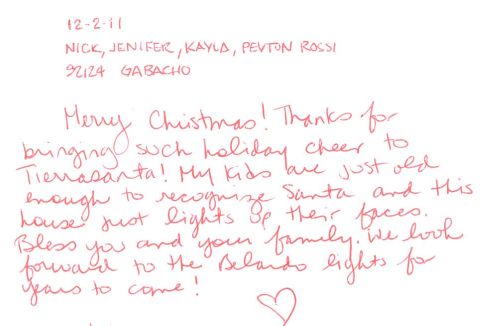 12-2-11
NICK, JENIFER, KAYLA, PEYTON ROSSI
92124 GABACHO
Merry Christmas! Thanks for
bringing such holiday cheer to
Tierrasanta! My kids are just old
enough to recognize Santa and this
house just lights up their faces.
Bless you and your family. We look
forward to the Belardo lights for
years to come!